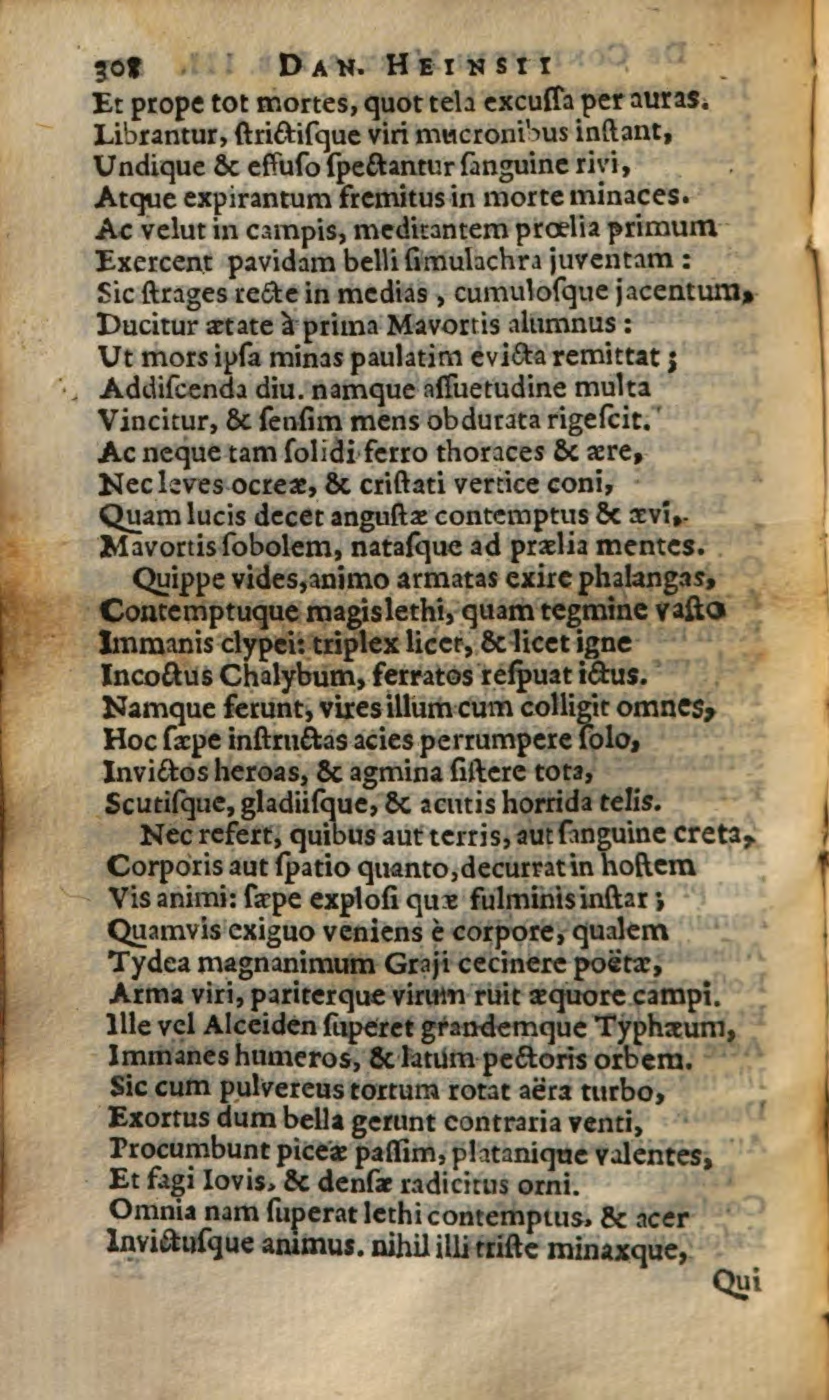 308 DAN. HEINSII
Et prope tot mortes, quot tela excuſſa per auras.
Librantur, ſtrictiſque viri mucronibus inſtant,
Undique & effuſo ſpectantur ſanguine rivi,
Atque expirantum fremitus in morte minaces.
Ac velut in campis, meditantem prœlia primum
Exercent pavidam belli ſimulachra juventam :
Sic ſtrages recte in medias , cumuloſque jacentum,
Ducitur ætate à prima Mavortis alumnus :
Ut mors ipſa minas paulatim evicta remittat ;
Addiſcenda diu. namque aſſuetudine multa
Vincitur, & ſenſim mens obdurata rigeſcit.
Ac neque tam ſolidi ferro thoraces & ære,
Nec leves ocreæ, & criſtati vertice coni,
Quam lucis decet anguſtæ contemptus & ævi,
Mavortis ſobolem, nataſque ad prælia mentes.
Quippe vides, animo armatas exire phalangas,
Contemptuque magis lethi, quam tegmine vaſto
Immanis clypei: triplex licet, & licet igne
Incoctus Chalybum, ferratos reſpuat ictus.
Namque ferunt, vires illum cum colligit omnes,
Hoc ſæpe inſtructas acies perrumpere ſolo,
Invictos heroas, & agmina ſiſtere tota,
Scutiſque, gladiiſque, & acutis horrida telis.
Nec refert, quibus aut terris, aut ſanguine creta,
Corporis aut ſpatio quanto, decurrat in hoſtem
Vis animi: ſæpe exploſi quæ fulminis inſtar ;
Quamvis exiguo veniens è corpore, qualem
Tydea magnanimum Graji cecinere poëtæ,
Arma viri, pariterque virum ruit æquore campi.
Ille vel Alceiden ſuperet grandemque Typhæum,
Immanes humeros, & latum pectoris orbem.
Sic cum pulvereus tortum rotat aëra turbo,
Exortus dum bella gerunt contraria venti,
Procumbunt piceæ paſſim, platanique valentes,
Et fagi Iovis, & denſæ radicitus orni.
Omnia nam ſuperat lethi contemptus, & acer
Invictuſque animus. nihil illi triſte minaxque,
Qui